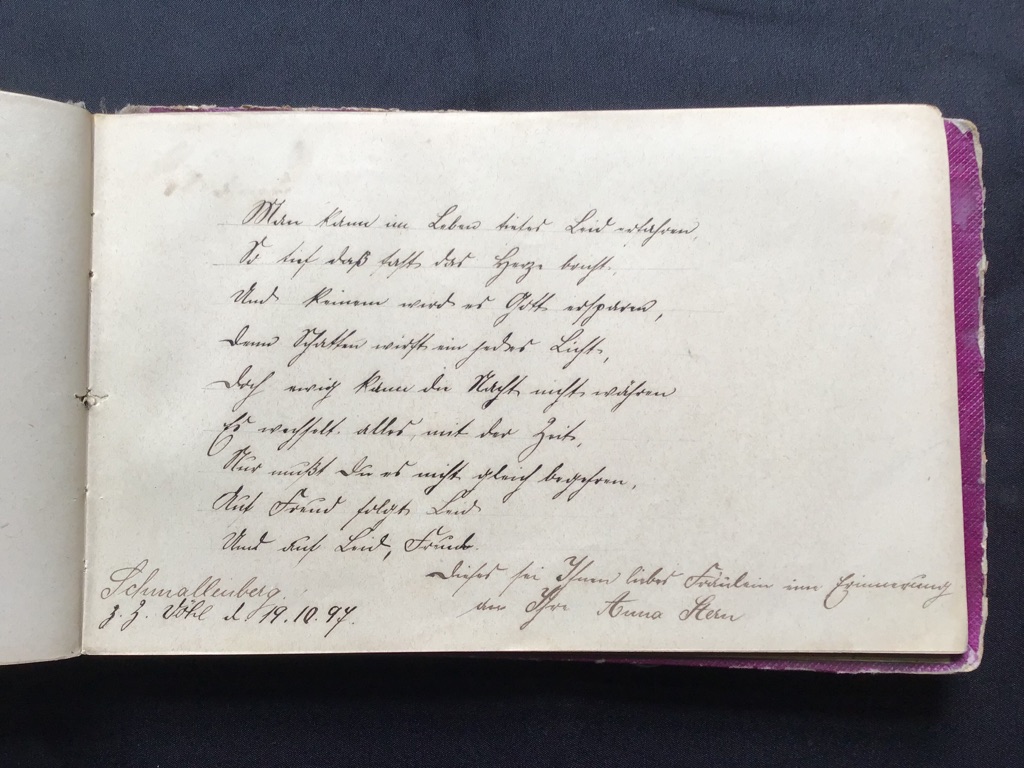 Man kann im Leben tiefes Leid erfahren,
So tief daß fast das Herze bricht.
Und keinem wird es Gott ersparen,
Denn Schatten wirft ein jedes Licht,
Doch ewig kann die Nacht nicht währen
Es wechselt alles mit der Zeit,
Nur mußt Du es nicht gleich begehren,
Auf Freud folgt Leid
Und auf Leid, Freud.
Dieses sei Ihnen liebes Fräulein eine Erinnerung
an Ihre Anna Stern
Schmallenberg.
z. Z. Vöhl d. 19.10.97.